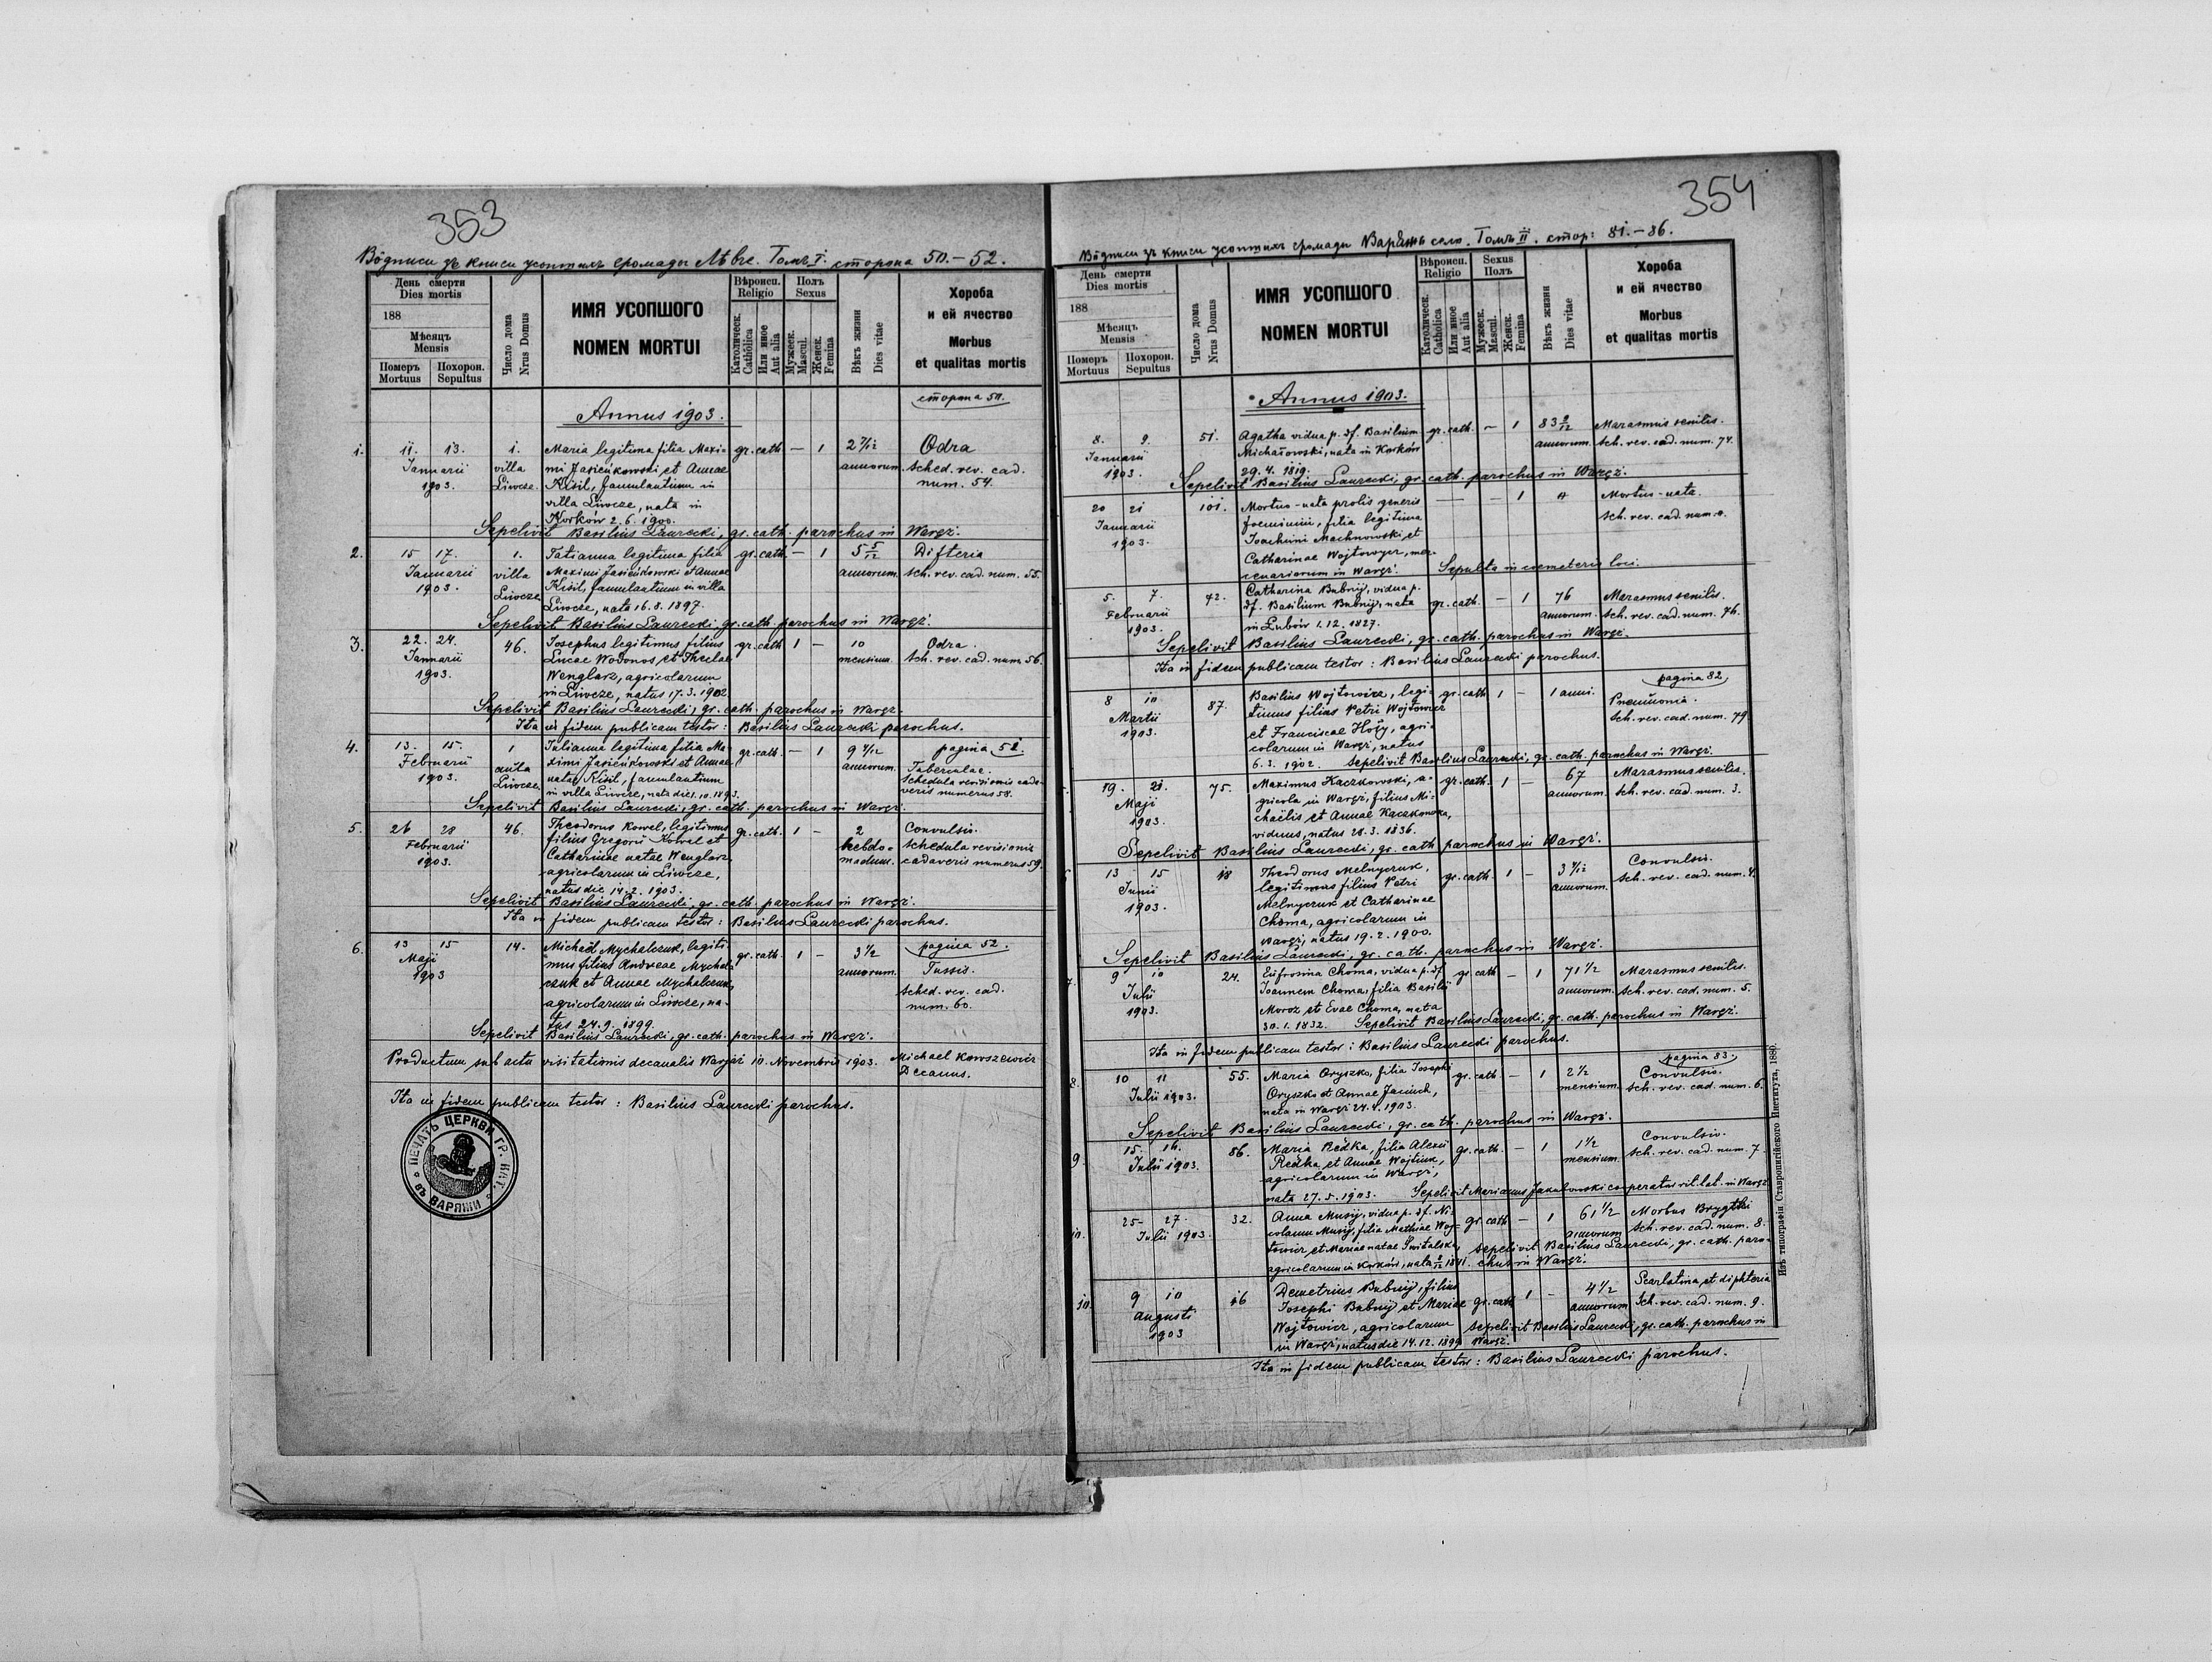 353
Вôдписи зъ книги усопшихъ громады Лѣвче. Томъ I. сторона 50.-52.
День смерти
Dies mortis
188
Мѣсяць
Mensis
Померъ
Mortuus
Похорон.
Sepultus
Число дома
Nrus Domus
ИМЯ УСОПШОГО
NOMEN MORTUI
Вѣроисп.
Religio
Католическ.
Catholica
Или иное
Aut alia
Полъ
Sexus
Мужеск.
Mascul.
Женск.
Femina
Вѣкъ жизни
Dies vitae
Хороба
и ей ячество
Morbus
et qualitas mortis
сторона 50.
Annus 1903.
1. 11. 13. 1. Maria legitima filia Maxi- gr. cath. — 1 2 7/12 Odra
Ianuarii villa mi Jasieńkowski et Annae annorum. sched. rev. cad.
1903. Liwcze. Kisil, famulantium in num. 54.
villa Liwcze, nata in
Korków 2. 6. 1900.
Sepelivit Basilius Laurecki, gr. cath. parochus in Waręż.
2. 15 17. 1. Tatianna legitima filia gr. cath. — 1 5 5/12 Difteria
Ianuarii villa Maximi Jasieńkowski et Annae annorum. sch. rev. cad. num. 55.
1903. Liwcze Kisil, famulantium in villa
Liwcze, nata 16. 8. 1897.
Sepelivit Basilius Laurecki, gr. cath. parochus in Waręż.
3. 22. 24. 46. Iosephus legitimus filius gr. cath 1 — 10 Odra.
Ianuarii Lucae Wodonos et Theclae mensium. sch. rev. cad. num. 56.
1903. Wenglarz, agricolarum
in Liwcze, natus 17. 3. 1902.
Sepelivit Basilius Laurecki, gr. cath. parochus in Waręż.
Ita in fidem publicam testor: Basilius Laurecki parochus.
4. 13. 15. 1 Iulianna legitima filia Ma- gr. cath. — 1 9 4/12 pagina 51.
Februarii aula ximi Jasieńkowski et Annae annorum. Tuberculae.
1903. Liwcze. natae Kisil, famulantium schedula revisionis cada-
in villa Liwcze, nata die 1. 10. 1893. veris numerus 58.
Sepelivit Basilius Laurecki, gr. cath. parochus in Waręż.
5. 26 28 46. Theodorus Kowel, legitimus gr. cath. 1 — 2 Convulsio.
Februarii filius Gregorii Kowel et hebdo- schedula revisionis
1903. Catharinae natae Wenglarz madum. cadaveris numerus 59.
agricolarum in Liwcze,
natus die 14. 2. 1903.
Sepelivit Basilius Laurecki, gr. cath. parochus in Waręż.
Ita in fidem publicam testor: Basilius Laurecki parochus.
6. 13 15 14. Michaël Mychalczuk, legiti- gr. cath. 1 — 3 1/2 pagina 52.
Maji mus filius Andreae Mychal- annorum. Tussis.
1903 czuk et Annae Mychalczuk, sched. rev. cad.
agricolarum in Liwcze, na- num. 60.
tus 24. 9. 1899.
Sepelivit Basilius Laurecki, gr. cath. parochus in Waręż.
Productum sub actu visitationis decanalis Waręż 10. Novembris 1903. Michael Kowszewicz
Decanus.
Ita in fidem publicam testor: Basilius Laurecki parochus.
ПЕЧАТЬ ЦЕРКВИ ГР. КАТ. ВЪ ВАРЯЖИ
354
Вôдписи зъ книги усопшихъ громады Варяжъ село. Томъ II. стор: 81.-86.
День смерти
Dies mortis
188
Мѣсяць
Mensis
Померъ
Mortuus
Похорон.
Sepultus
Число дома
Nrus Domus
ИМЯ УСОПШОГО
NOMEN MORTUI
Вѣроисп.
Religio
Католическ.
Catholica
Или иное
Aut alia
Sexus
Полъ
Мужеск.
Mascul.
Женск.
Femina
Вѣкъ жизни
Dies vitae
Хороба
и ей ячество
Morbus
et qualitas mortis
Annus 1903.
8. 9. 51. Agatha vidua p. df. Basilium gr. cath. — 1 83 9/12 Marasmus senilis.
Ianuarii Michałowski, nata in Korków annorum. sch. rev. cad. num. 74.
1903. 29. 4. 1819.
Sepelivit Basilius Laurecki, gr. cath. parochus in Waręż.
20 21 101. Mortuo-nata prolis generis — — 1 Mortuo-nata.
Ianuarii foeminini, filia legitima sch. rev. cad. num.
1903. Ioachimi Machnowski et
Catharinae Wojtowycz, mer-
cenariorum in Waręż. Sepulta in coemeterio loci.
5. 7. 42. Catharina Bubnij, vidua p. gr. cath. — 1 76 Marasmus senilis.
Februarii df. Basilium Bubnij, nata annorum. sch. rev. cad. num. 76.
1903. in Lubów 1. 12. 1827.
Sepelivit Basilius Laurecki, gr. cath. parochus in Waręż.
Ita in fidem publicam testor: Basilius Laurecki parochus.
pagina 82
8 10 87. Basilius Wojtowicz, legi- gr. cath 1 — 1 anni. Pneumonia.
Martii timus filius Petri Wojtowicz sch. rev. cad. num. 79.
1903. et Franciscae Hoły, agri-
colarum in Waręż, natus
6. 3. 1902. Sepelivit Basilius Laurecki, gr. cath. parochus in Waręż.
19. 21. 75. Maximus Kaczkowski, a- gr. cath. 1 — 67 Marasmus senilis.
Maji gricola in Waręż, filius Mi- annorum. sch. rev. cad. num. 3.
1903. chaëlis et Annae Kaczkowska,
viduus, natus 28. 3. 1836.
Sepelivit Basilius Laurecki, gr. cath. parochus in Waręż.
13 15 18 Theodorus Melnyczuk, gr. cath. 1 — 3 4/12 Convulsio.
Iunii legitimus filius Petri annorum. sch. rev. cad. num. 4.
1903. Melnyczuk et Catharinae
Choma, agricolarum in
Waręż, natus 19. 2. 1900.
Sepelivit Basilius Laurecki, gr. cath. parochus in Waręż.
7. 9 10 24. Eufrosina Choma, vidua p. df. gr. cath — 1 71 1/2 Marasmus senilis.
Iulii Ioannem Choma, filia Basilii annorum. sch. rev. cad. num. 5.
1903. Moroz et Evae Choma, nata
30. 1. 1832. Sepelivit Basilius Laurecki, gr. cath. parochus in Waręż.
Ita in fidem publicam testor: Basilius Laurecki parochus.
pagina 83.
8. 10 11 55. Maria Oryszko, filia Iosephi gr. cath. — 1 2 1/2 Convulsio.
Iulii 1903. Oryszko et Annae Jaciuch, mensium. sch. rev. cad. num. 6.
nata in Waręż 24. 4. 1903.
Sepelivit Basilius Laurecki, gr. cath. parochus in Waręż.
9. 15. 16. 86. Maria Redka, filia Alexii gr. cath. — 1 1 1/2 Convulsio.
Iulii 1903. Redka et Annae Wojtiuk, mensium. sch. rev. cad. num. 7
agricolarum in Waręż,
nata 27. 5. 1903. Sepelivit Marianus Jakubowski cooperator rit. lat. in Waręż
10. 25- 27. 32. Anna Musij, vidua p. df. Ni- gr. cath — 1 61 1/2 Morbus Brygthi
Iulii 1903. colaum Musij, filia Mathiae Woj- annorum sch. rev. cad. num. 8.
towicz et Mariae natae Switalska, sepelivit Basilius Laurecki, gr. cath. paro-
agricolarum in Korków, nata 1841. chus in Waręż.
10. 9 10 16 Demetrius Bubnij, filius gr. cath 1 — 4 1/2 Scarlatina et diphteria
Augusti Iosephi Bubnij et Mariae annorum sch. rev. cad. num. 9.
1903 Wojtowicz, agricolarum sepelivit Basilius Laurecki, gr. cath. parochus in
in Waręż, natus die 14. 12. 1899 Waręż.
Ita in fidem publicam testor: Basilius Laurecki parochus.
Изъ типографіи Ставропигійского Института, 1880.